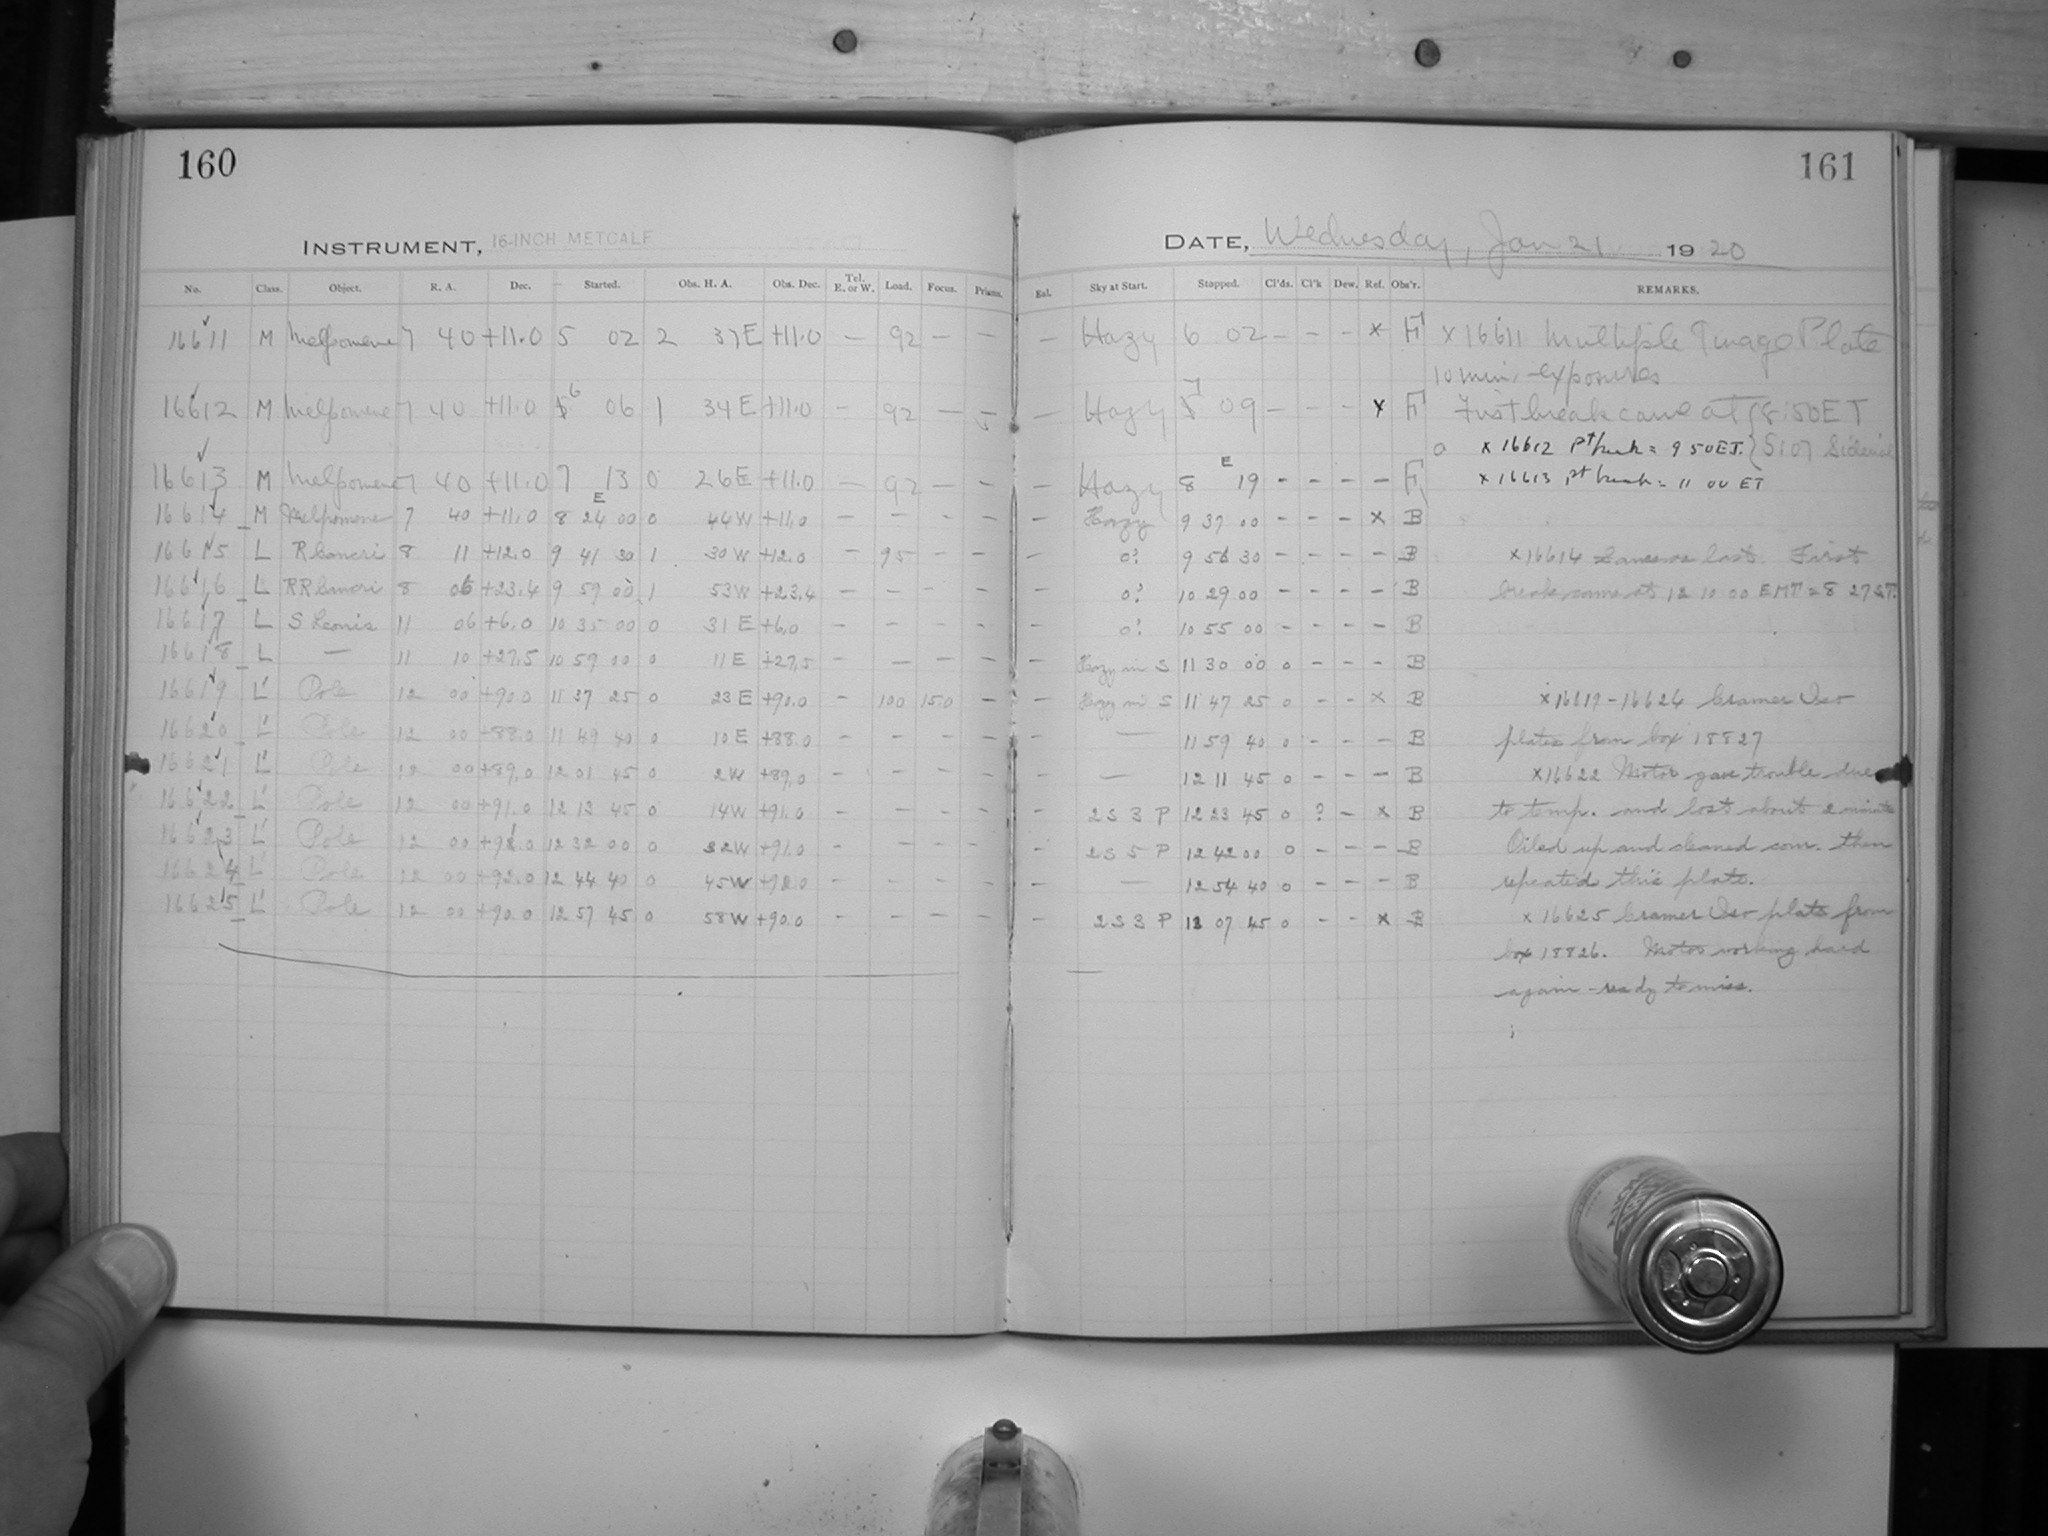 160
161
INSTRUMENT, 16-INCH METCALF
DATE, Wednesday, Jan 21 1920
No. Class. Object. R. A. Dec. Started. Obs. H. A. Obs. Dec. Tel. E. or W. Load. Focus. Prisms. Eal. Sky at Start. Stopped. Cl'ds. Cl'k Dew. Ref. Obs'r. REMARKS.
16611 M Melpomene 7 40 +11.0 5 02 2 37 E +11.0 — 92 — — — Hazy 6 02 — — — x F x 16611 Multiple Image Plate
10 min. exposures
16612 M Melpomene 7 40 +11.0 6 06 1 34 E +11.0 — 92 — — — Hazy 7 09 — — — x F First break came at 8:50 ET
x 16612 1st break = 9 50 ET. } 5:07 Sidereal
16613 M Melpomene 7 40 +11.0 7 13 0 26 E +11.0 — 92 — — — Hazy 8 E 19 - - - - F x 16613 1st break = 11 00 ET
16614 M Melpomene 7 40 +11.0 8 E 24 00 0 44 W +11.0 - - - - - Hazy 9 37 00 - - - x B
16615 L R Cancri 8 11 +12.0 9 41 30 1 30 W +12.0 - 95 - - - 0? 9 56 30 - - - - B x 16614 Same as last. First
16616 L RR Cancri 8 06 +23.4 9 59 00 1 53 W +23.4 - - - - - 0? 10 29 00 - - - - B break came at 12 10 00 EMT = 8 27 ST.
16617 L S Leonis 11 06 +6.0 10 35 00 0 31 E +6.0 - - - - - 0? 10 55 00 - - - - B
16618 L — 11 10 +27.5 10 59 00 0 11 E +27.5 - - - - - Hazy in S 11 30 00 0 - - - B
16619 L' Pole 12 00 +90.0 11 37 25 0 23 E +90.0 - 100 15.0 - - Hazy in S 11 47 25 0 - - x B x 16619 - 16624 Cramer Iso
16620 L' Pole 12 00 +88.0 11 49 40 0 10 E +88.0 - - - - - — 11 59 40 0 - - - B plates from box 18827
16621 L' Pole 12 00 +89.0 12 01 45 0 2 W +89.0 - - - - - — 12 11 45 0 - - - B x 16622 Motor gave trouble due
16622 L' Pole 12 00 +91.0 12 13 45 0 14 W +91.0 - - - - - 2 S 3 P 12 23 45 0 ? - x B to temp. and lost about 2 minutes
16623 L' Pole 12 00 +91.0 12 32 00 0 32 W +91.0 - - - - - 2 S 5 P 12 42 00 0 - - - B Oiled up and cleaned com. then
16624 L' Pole 12 00 +92.0 12 44 40 0 45 W +92.0 - - - - - — 12 54 40 0 - - - B repeated this plate.
16625 L' Pole 12 00 +90.0 12 57 45 0 58 W +90.0 - - - - - 2 S 3 P 13 07 45 0 - - x B x 16625 Cramer Iso plate from
box 18826. Motor working hard
again - ready to miss.